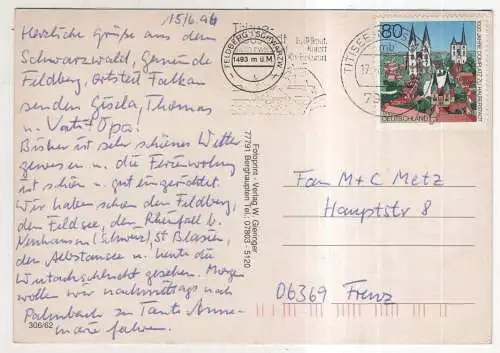 15/6.96
Herzliche Grüße aus dem
Schwarzwald, Gemeinde
Feldberg, Ortsteil Falkau
senden Gisela, Thomas
u. Opa!
Bisher ist sehr schönes Wetter
gewesen u. die Ferienwohnung
ist schön u. gut eingerichtet.
Wir haben schon den Feldberg,
den Feldsee, den Rheinfall b.
Neuhausen (Schweiz), St Blasien,
den u. heute die
Wutachschlucht gesehen. Morgen
wollen wir nachmittags nach
zu Tante Anne-
marie fahren.
306/62
Fotoprint - Verlag W. Gieringer
77791 Berghaupten Tel.: 07803 - 5120
FELDBERG (SCHWARZW)
1493 m ü M
TITISEE
17.
80
1000 JAHRE DOMPLATZ ZU HALBERSTADT
DEUTSCHLAND
Fam M + C Metz
Hauptstr 8
06369 Frenz